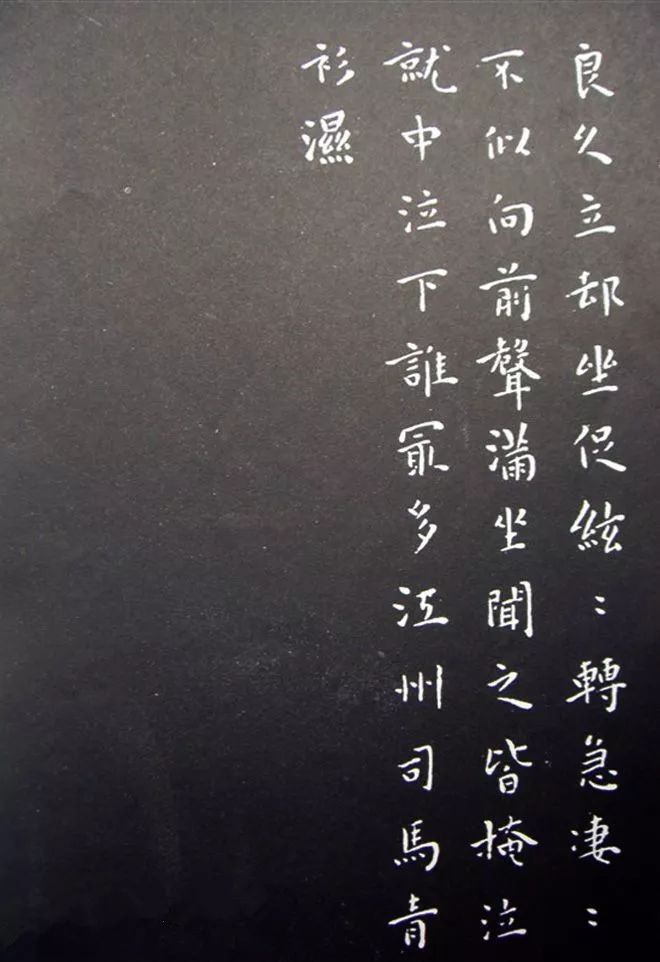 良久立却坐促絃〻轉急凄〻
不似向前聲滿坐聞之皆掩泣
就中泣下誰冣多江州司馬青
衫濕